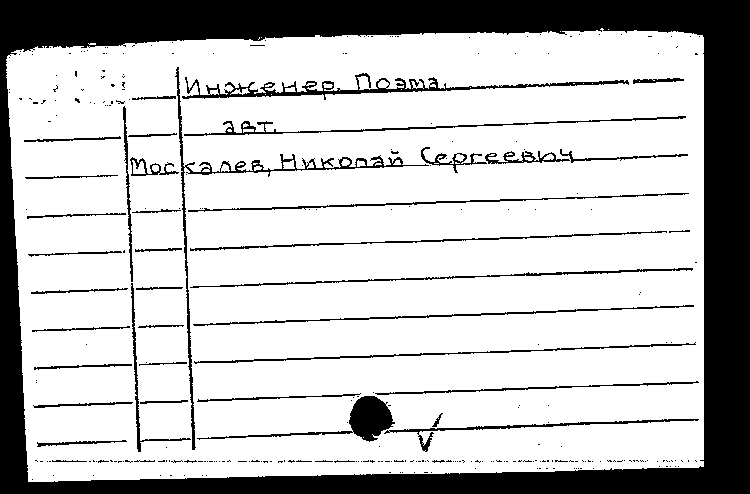 Инженер. Поэма.
авт.
Москалев, Николай Сергеевич